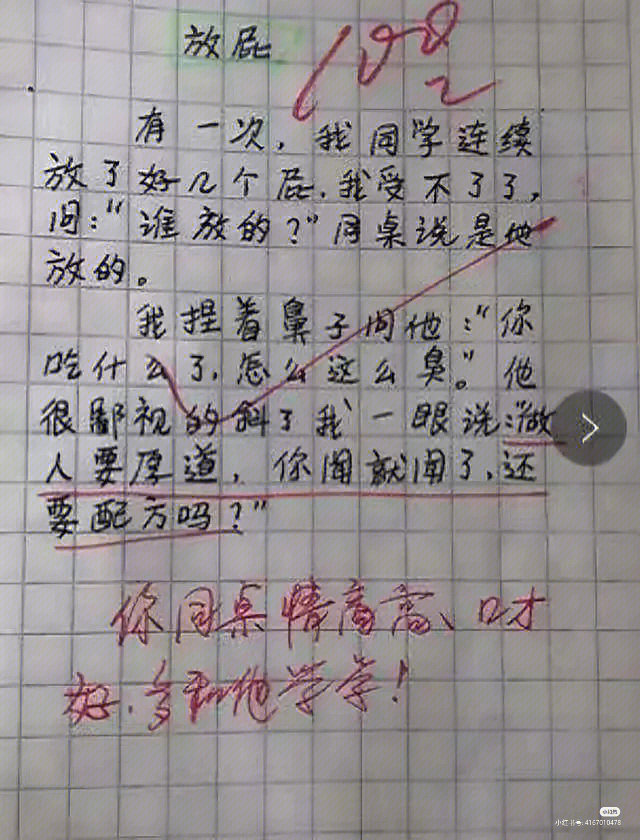 放屁
100
有一次,我同学连续
放了好几个屁.我受不了了,
问:“谁放的?”同桌说是他
放的。
我捏着鼻子问他:“你
吃什么了,怎么这么臭。”他
很鄙视的斜了我一眼说:“做
人要厚道,你闻就闻了,还
要配方吗?”
你同桌情商高、口才
好.多和他学学!
小红书
小红书号:4167010478